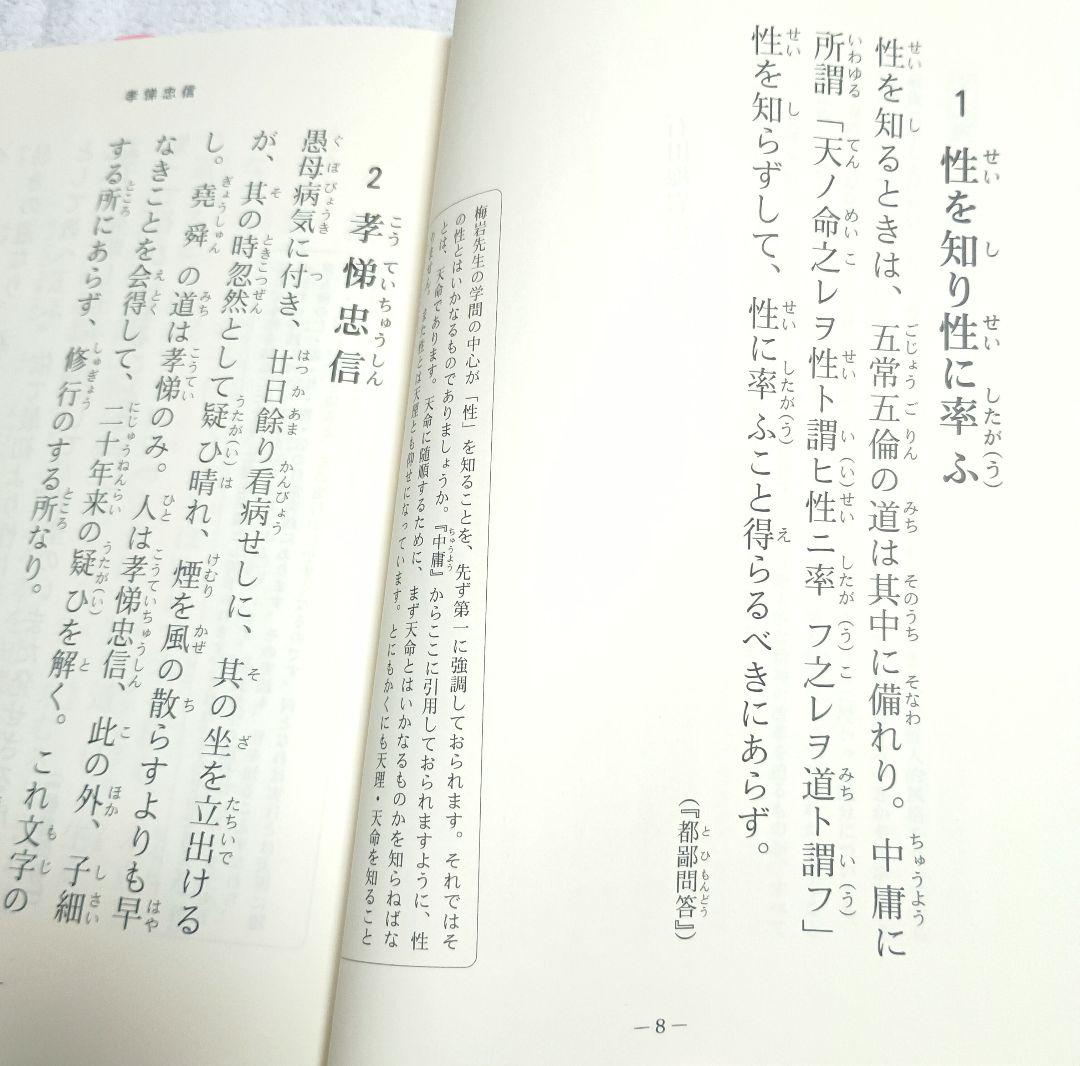 1 性を知り性に率ふ
性を知るときは、五常五倫の道は其中に備れり。中庸に
所謂「天ノ命之レヲ性ト謂ヒ性ニ率フ之レヲ道ト謂フ」
性を知らずして、性に率ふこと得らるべきにあらず。
(『都鄙問答』)
梅岩先生の学問の中心が「性」を知ることを、先ず第一に強調しておられます。それではそ
の性とはいかなるものでありましょうか。『中庸』からここに引用しておられますように、性
とは、天命であります。天命に随順するために、まず天命とはいかなるものかを知らねばな
りません。また性とは天理とも仰せになっています。とにもかくにも天理・天命を知ること
―8―
孝悌忠信
2 孝悌忠信
愚母病気に付き、廿日餘り看病せしに、其の坐を立出ける
が、其の時忽然として疑ひ晴れ、煙を風の散らすよりも早
し。堯舜の道は孝悌のみ。人は孝悌忠信、此の外、子細
なきことを会得して、二十年来の疑ひを解く。これ文字の
する所にあらず、修行のする所なり。